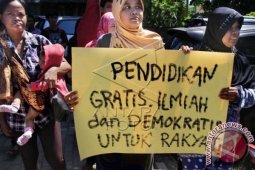 PENDIDIKAN
GRATIS, ILMIAH
dan DEMOKRATIS
UNTUK RAKYAT